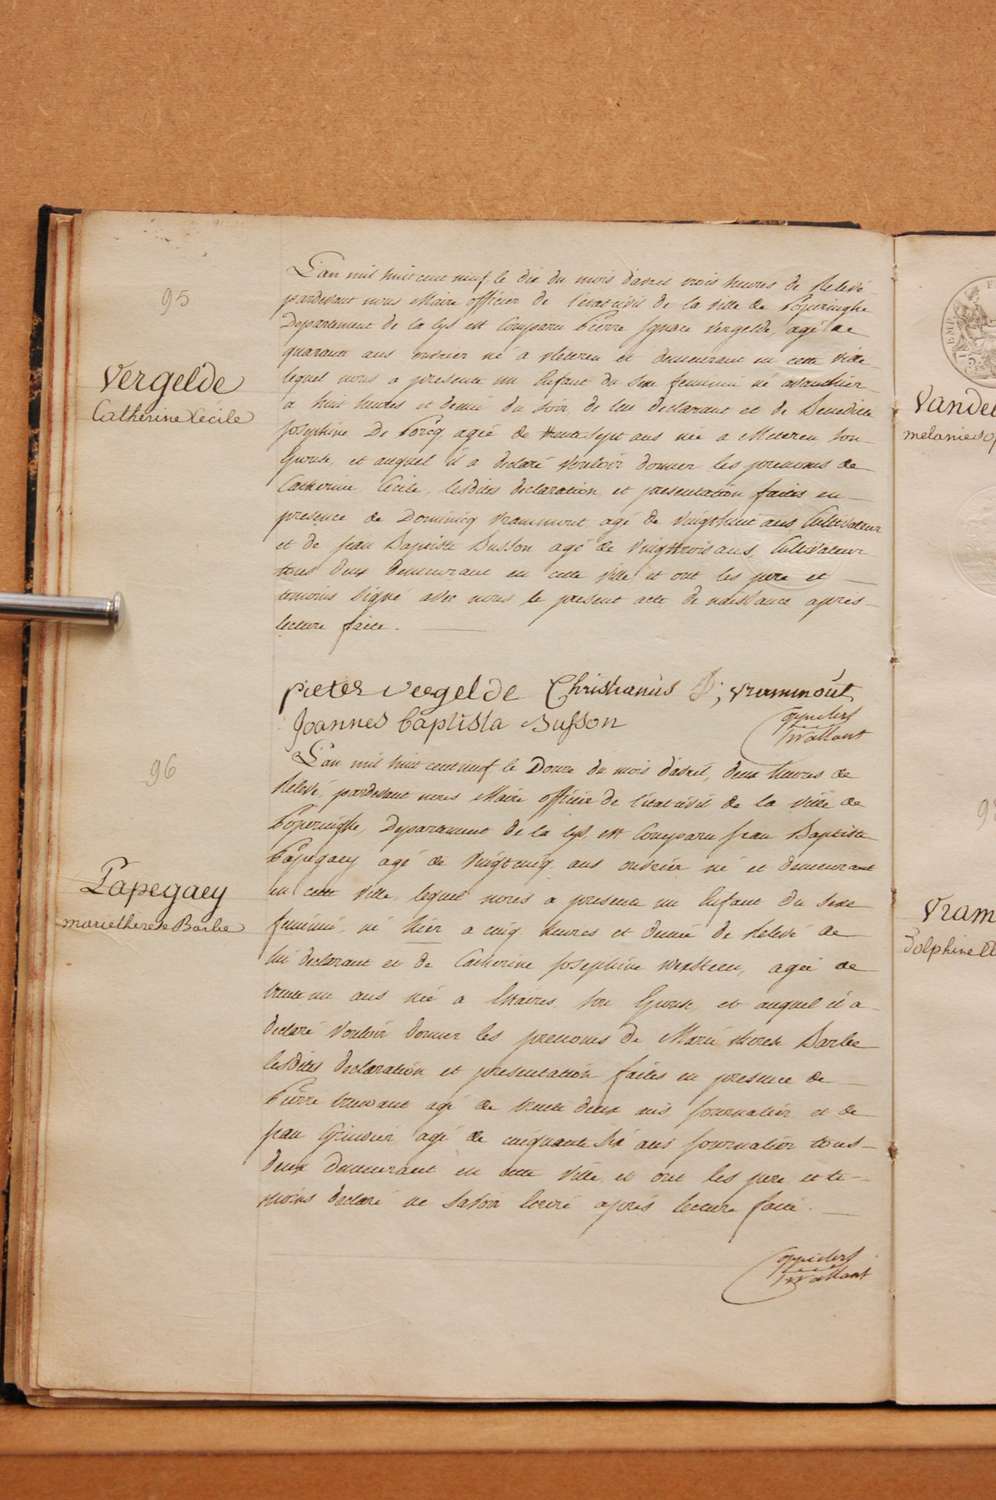 95
Vergelde
Catherine Cecile
L'an mil huit cent neuf le dix du mois d'avril trois heures de Relevé
pardevant nous Maire officier de l'etat civil de la ville de Poperinghe
Departement de la Lys est Comparu Pierre Ignace Vergelde, agé de
quarante ans ouvrier né a Meteren et demeurant en cette ville
lequel nous a presenté un Enfant du sexe feminin né
a huit heures et demie du soir de lui declarant et de Benedicte
Josephine De agée de trente sept ans née a Meteren son
Epouse, et auquel il a declaré vouloir donner les prenoms de
Catherine Cecile, lesdites declaration et presentation faites en
presence de Dominicq Vrammout agé de vingthuit ans Cultivateur
et de Jean Baptiste Busson agé de vingttrois ans, Cultivateur
tous deux demeurant en cette ville et ont les pere et
temoins signé avec nous le present acte de naissance après
lecture faite.
pieter vergelde Christianus D; vrammout
Joannes baptista Busson
96
Papegaey
marie therese Barbe
L'an mil huit cent neuf le Douze du mois d'avril, deux heures de
Relevé, pardevant nous Maire officier de l'etat civil de la ville de
Poperinghe, Departement de la Lys est Comparu Jean Baptiste
Papegaey agé de vingtcinq ans ouvrier né et demeurant
en cette ville, lequel nous a presenté un Enfant du sexe
feminin, né hier a cinq heures et demie de Relevé de
lui declarant et de Catherine Josephine agée de
trente un ans née a Estaires son Epouse, et auquel il a
declaré vouloir donner les prenoms de Marie therese Barbe
lesdites declaration et presentation faites en presence de
Pierre agé de trente deux ans Journalier et de
Jean agé de cinquante six ans Journalier tous
deux Demeurant en cette ville, et ont les pere et te-
moins declaré ne savoir ecrire après lecture faite.
Vandel
melanie
Vram